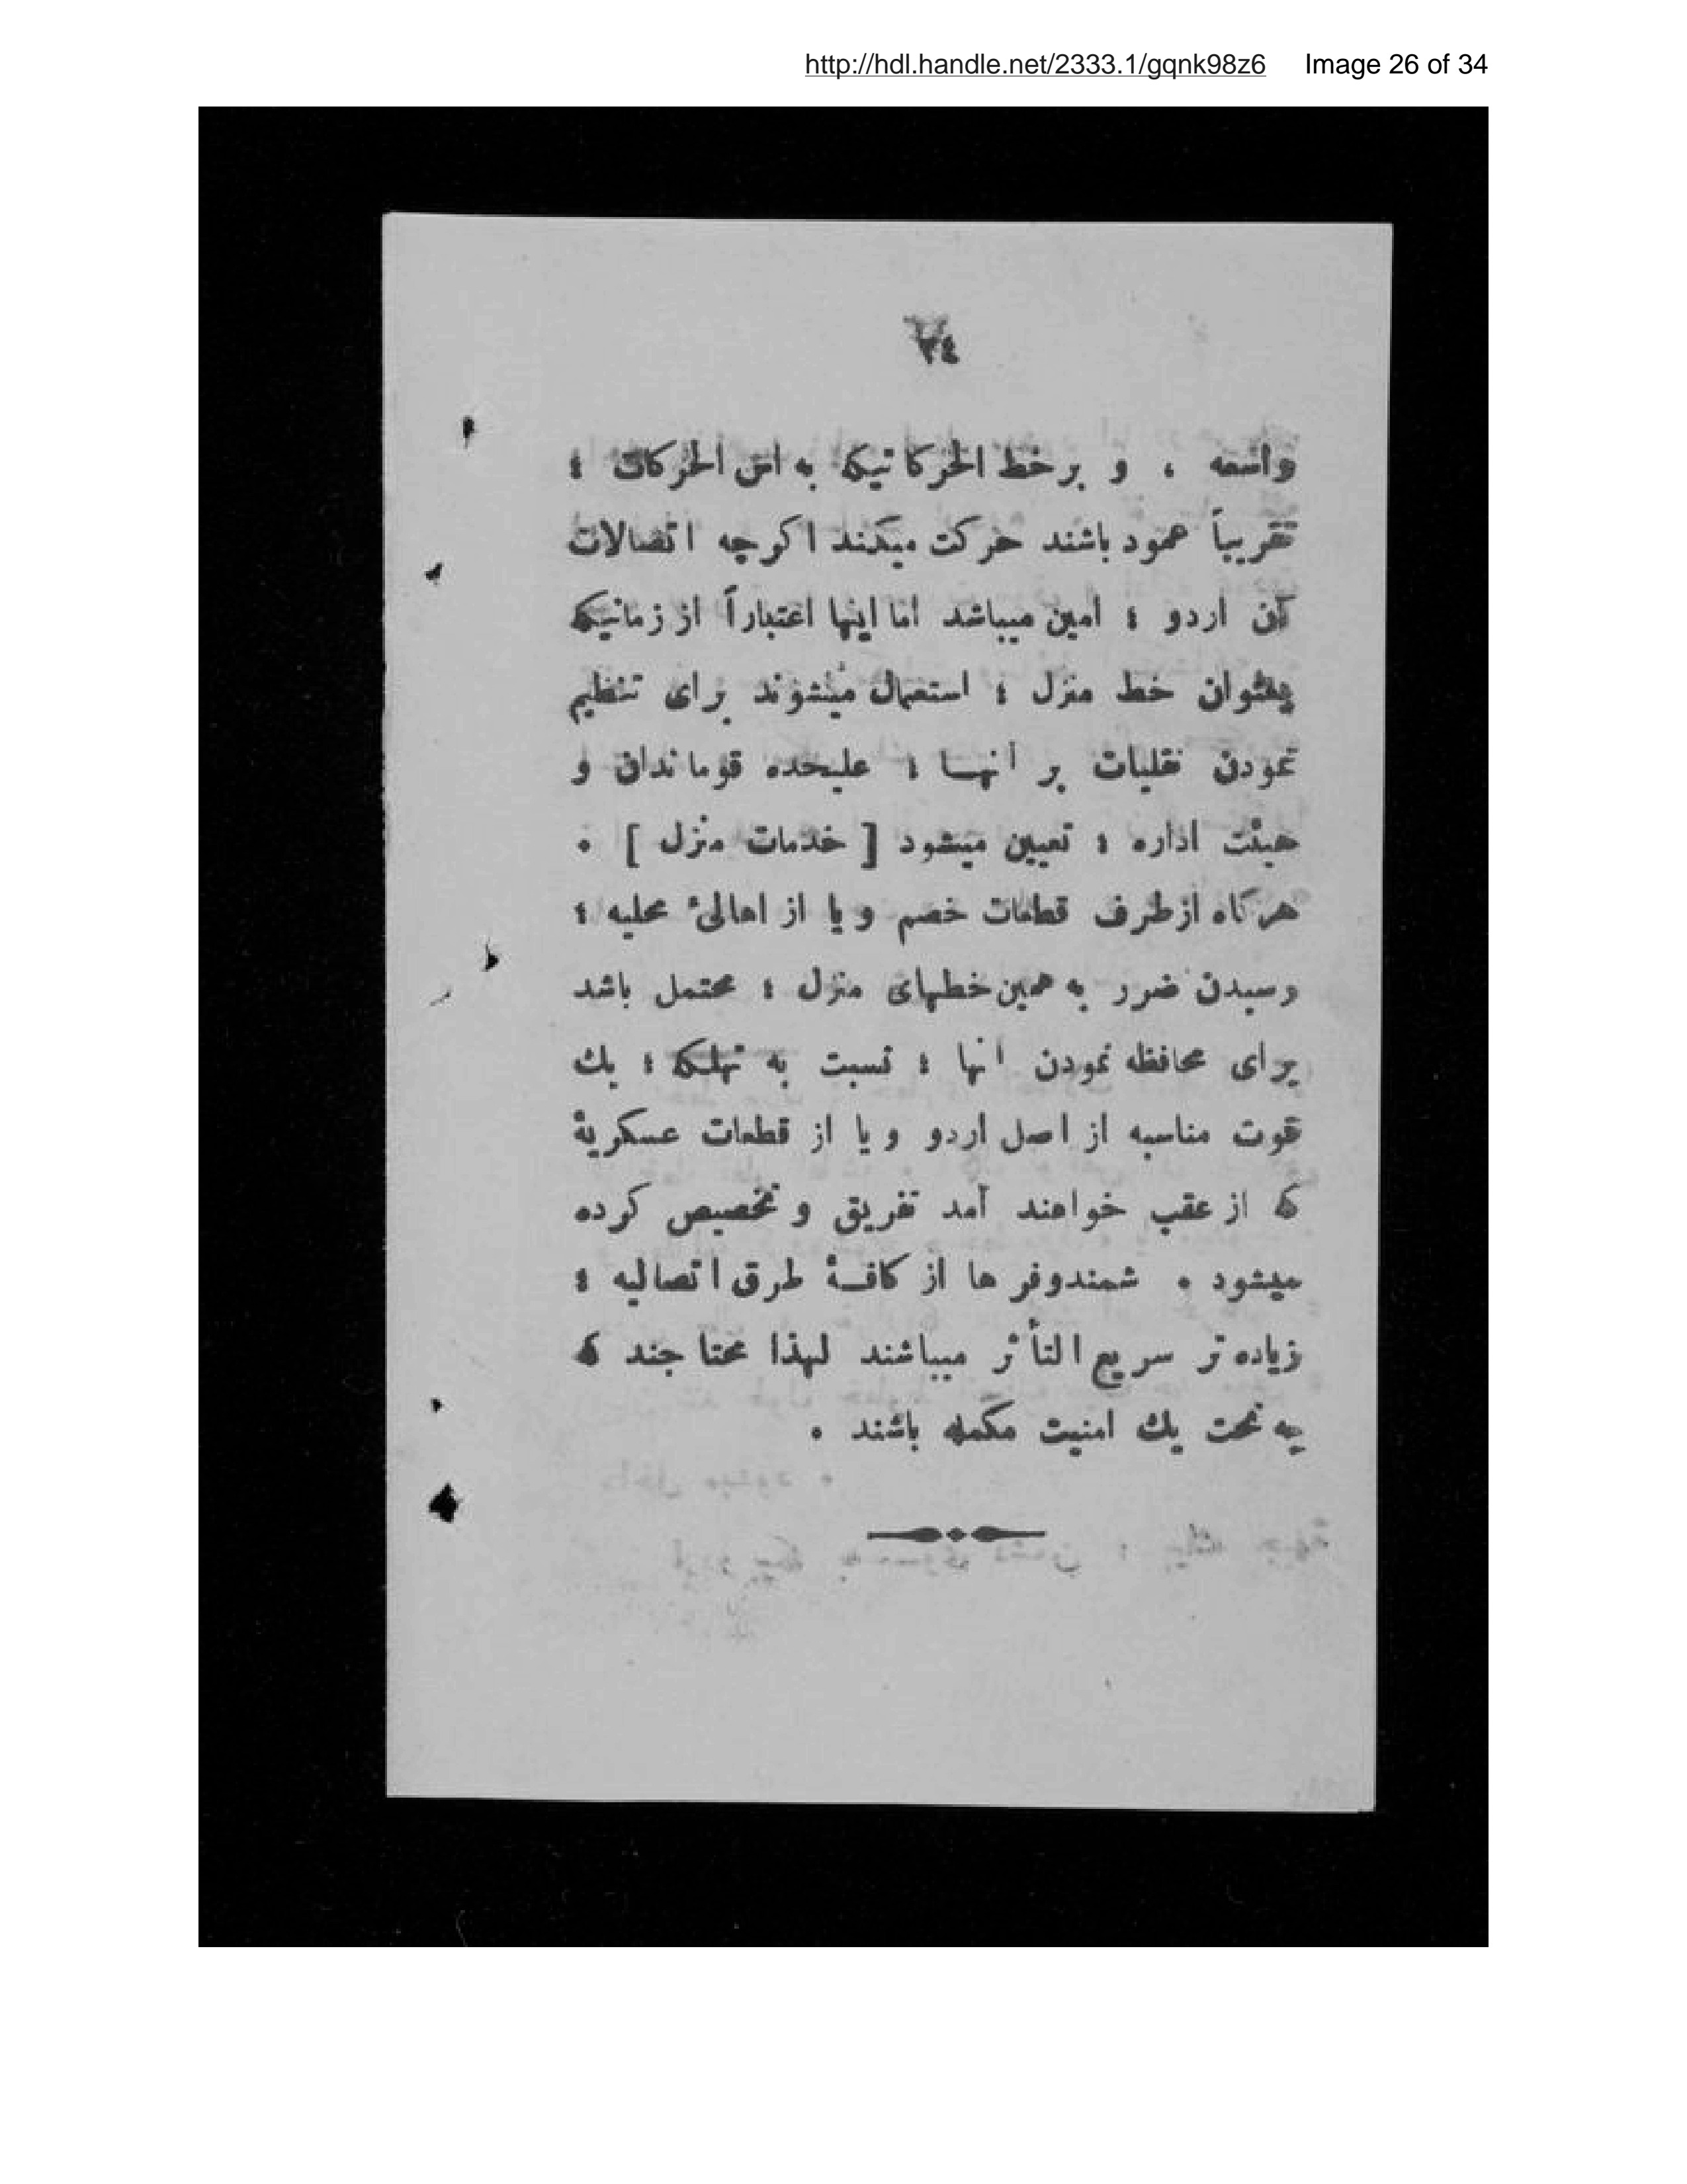 http://hdl.handle.net/2333.1/gqnk98z6 Image 26 of 34
٢٤
واسعه ، و بر خط الحركاتيكه به اس الحركات ؛
تقريباً عمود باشند حركت ميكنند اكرچه اتصالات
آن اردو ؛ امين ميباشد اما اينها اعتباراً از زمانيكه
بعنوان خط منزل ؛ استعمال ميشوند براى تنظيم
نمودن نقليات بر آنها ؛ عليحده قوماندان و
هيئت اداره ؛ تعيين ميشود [ خدمات منزل ] .
هركاه از طرف قطعات خصم و يا از اهالئ محليه ؛
رسيدن ضرر به همين خطهاى منزل ؛ محتمل باشد
براى محافظه نمودن انها ؛ نسبت به تهلكه ؛ يك
قوت مناسبه از اصل اردو و يا از قطعات عسكريۀ
كه از عقب خواهند آمد تفريق و تخصيص كرده
ميشود . شمندوفر ها از كافۀ طرق اتصاليه ؛
زياده تر سريع التأثر ميباشند لهذا محتاجند كه
به تحت يك امنيت مكمله باشند .